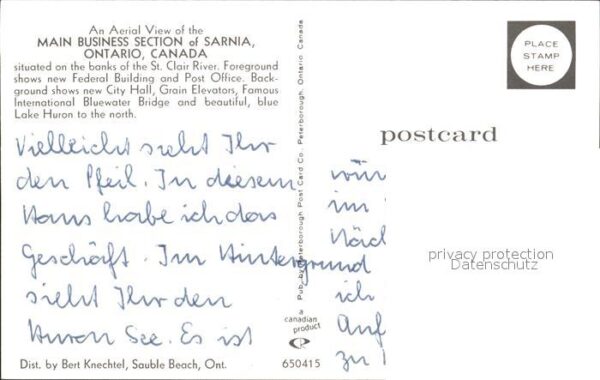 An Aerial View of the
MAIN BUSINESS SECTION of SARNIA,
ONTARIO, CANADA
situated on the banks of the St. Clair River. Foreground
shows new Federal Building and Post Office. Back-
ground shows new City Hall, Grain Elevators, Famous
International Bluewater Bridge and beautiful, blue
Lake Huron to the north.
Vielleicht sieht Ihr
den Pfeil. In diesem
Haus habe ich das
Geschäft. Im Hintergrund
sieht Ihr den
Huron See. Es ist
Dist. by Bert Knechtel, Sauble Beach, Ont.
650415
Pub. by Peterborough Post Card Co., Peterborough, Ontario, Canada
a
canadian
product
PLACE
STAMP
HERE
postcard
im
ich
Auf
zu
privacy protection
Datenschutz